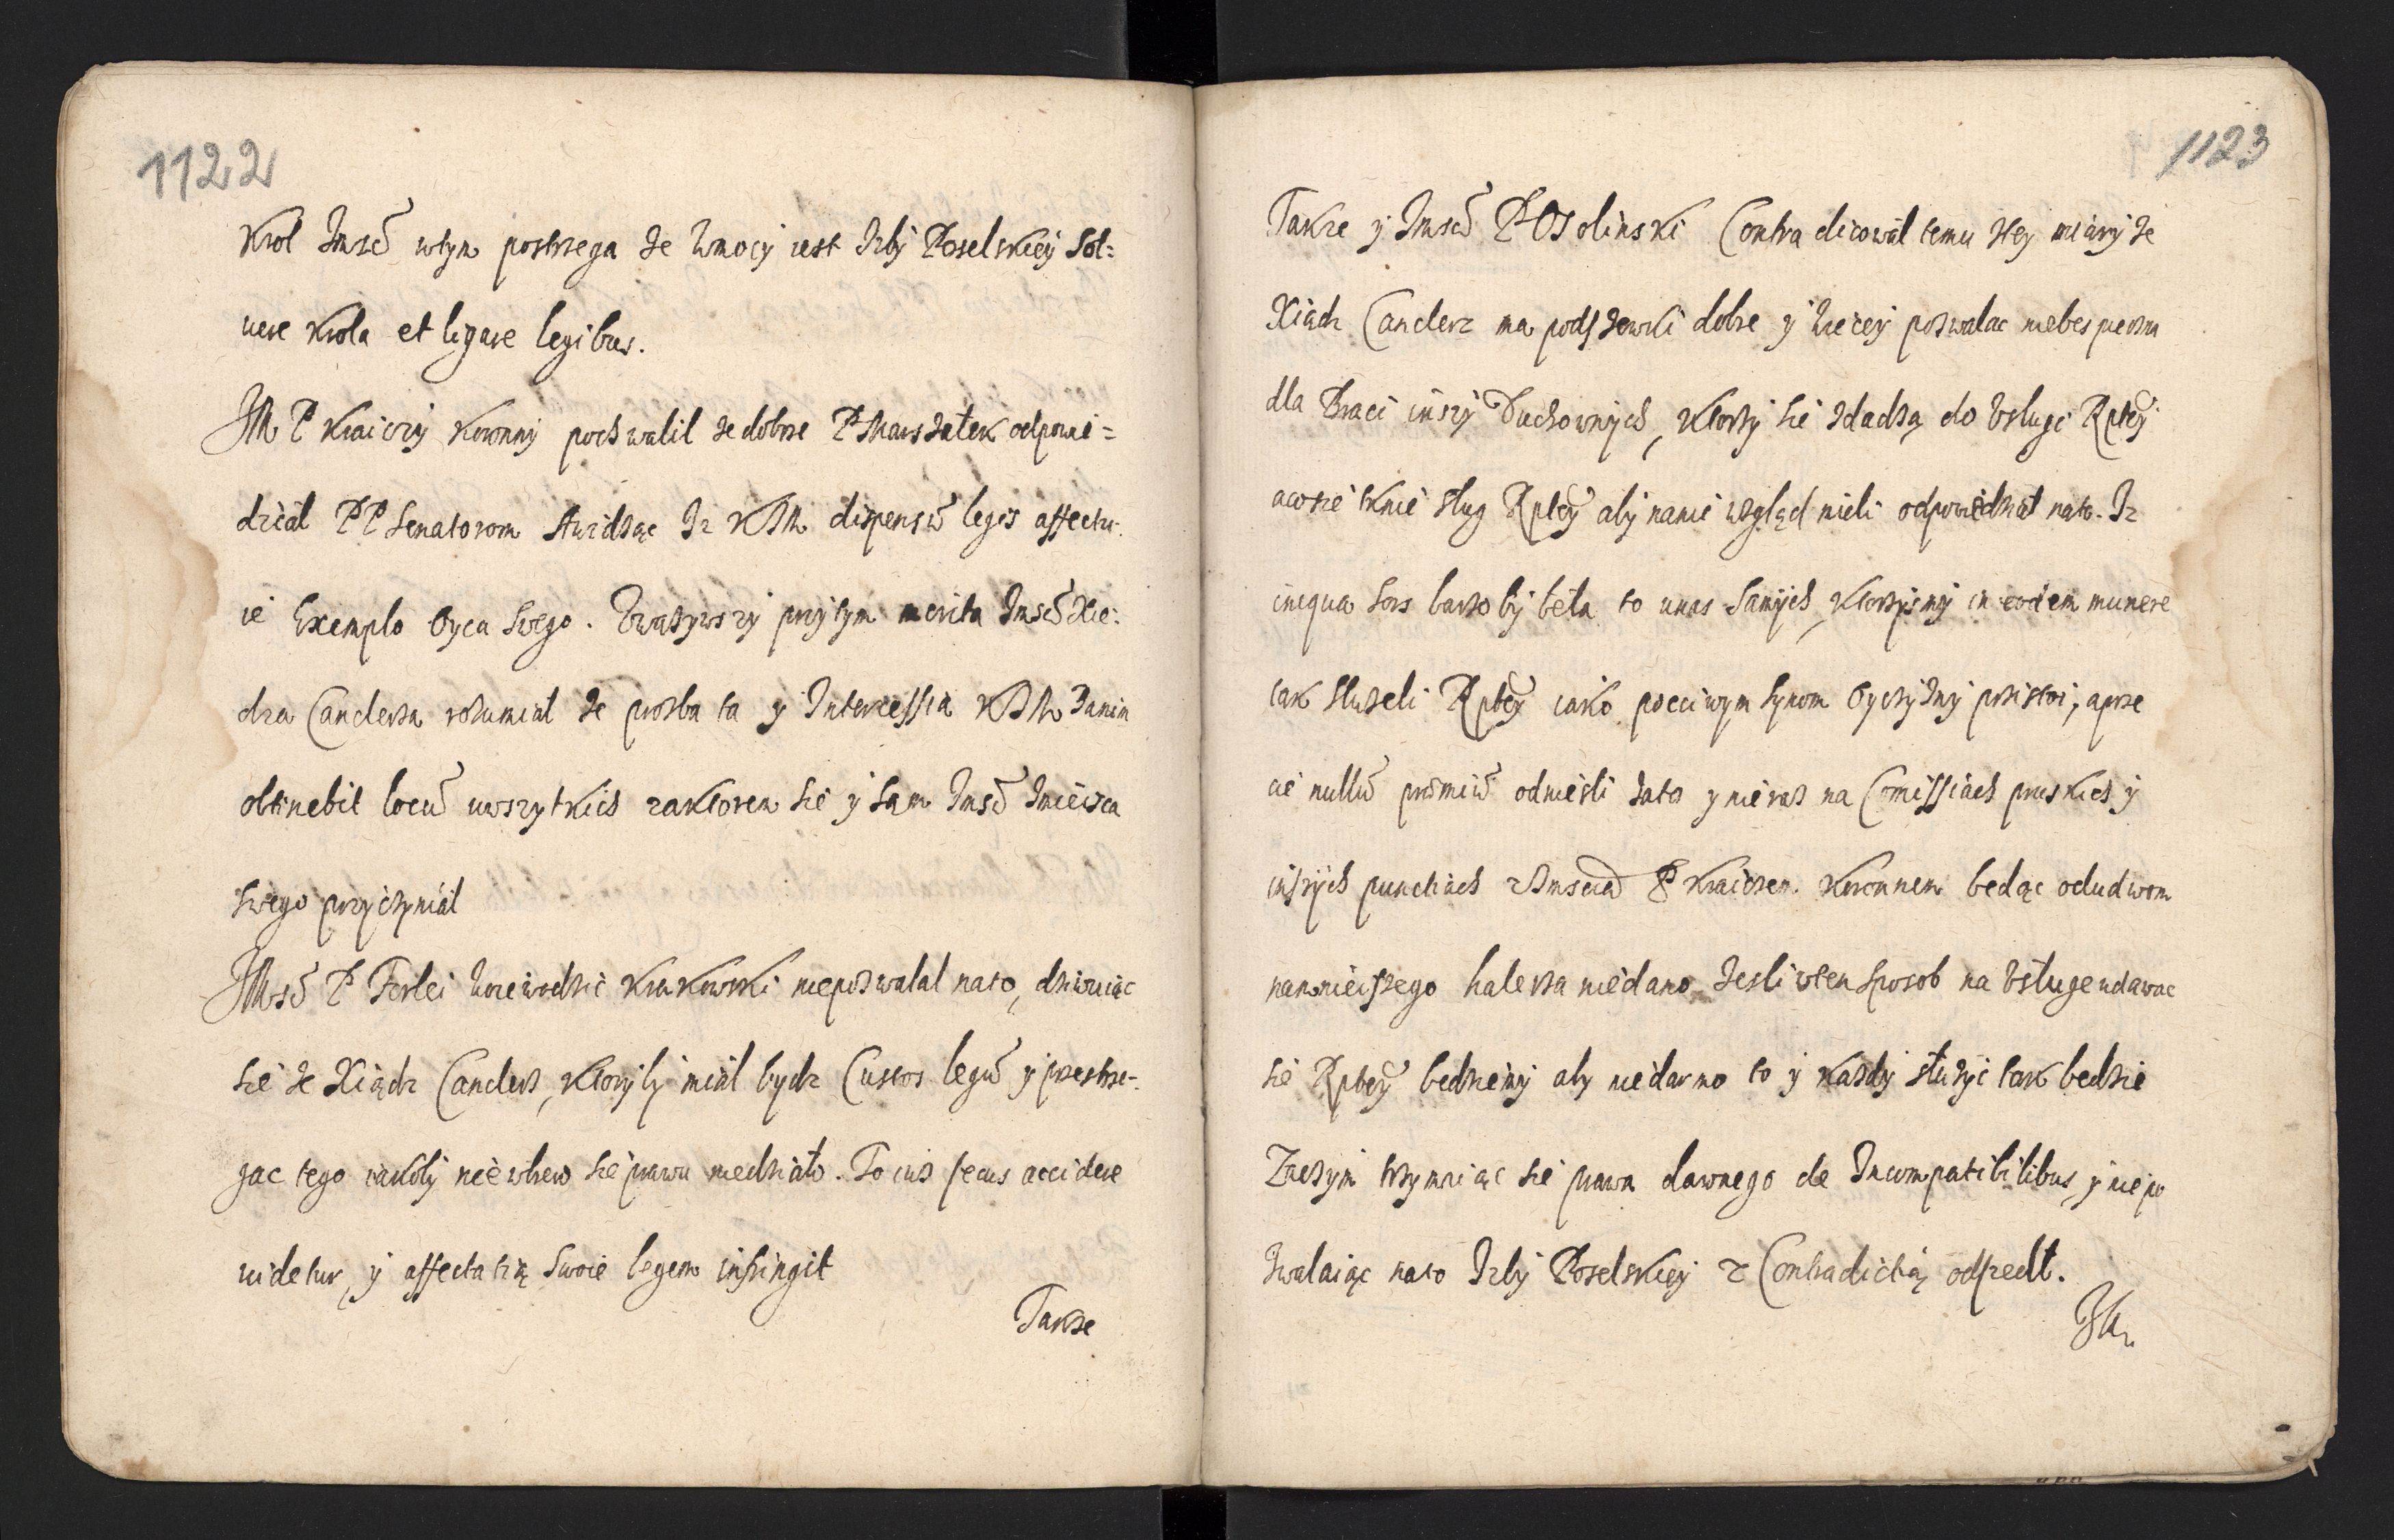 1122
Krol Jmsć wtym postrzega że wmocy iest Izby Poselskiey Sol=
uere Krola et ligare legibus.
JM P Kraiczy Koronny pochwalil że dobrze P Marszałek odpowie=
dział PP Senatorom Awidząc Iz KJM dispensū legis affectu-
ie Exemplo Oyca Swego. Uważywszy przytym merita Jmsć Xię=
dza Canclerza rozumiał że prozba ta y Intercessia KJM Panin
obtinebit locū uwszytkich zaktorem się y sam Jmsć zmieisca
swego przyczyniał
JMsć P Ferlei Woiewodzic Krakowski niepozwalal nato, dziwuiąc
się że Xiądz Canclerz, Ktoryby miał bydz Custos legū y przestrze-
gac tego iakoby niewbrew się prawu niedziało. To iuz secus accidere
uidetur, y affectatią Swoie legem infringit
Takze
1123
Takze y Jmsć P Osolinski Contradicował temu ztey miary że
Xiądz Canclerz ma podszewki dobre y wiecey pozwalac niebespieczna
dla Braci inszy Duchownych, Ktorzy się zdadzą do Usługi Rptey
acosie tknie sług Rptey aby nanie wzgląd mieli odpowiedział nato. Iz
iniqua Sors barzo by beła to unas Samych, Ktorzysmy in eodem munere
tak służeli Rptey iako poczciwym synom Oyczyzny przistoi, aprze
cie nullū prœmiū odnieśli zato y nieraz na Comissiach pruskich y
inszych punctiach zJmscią P Kraiczem Koronnem będąc oduudwom
namnieiszego halerza niedano Jesli wten sposob na Usługe udawac
się Rptey bedziemy aby niedarmo to y Kazdy słuzyc tak bedzie
Zaczym trzymaiąc się prawa dawnego de Incompatibilibus, y nie po
zwalaiąc nato Izby Poselskiey z Contradictią odszedł.
JM